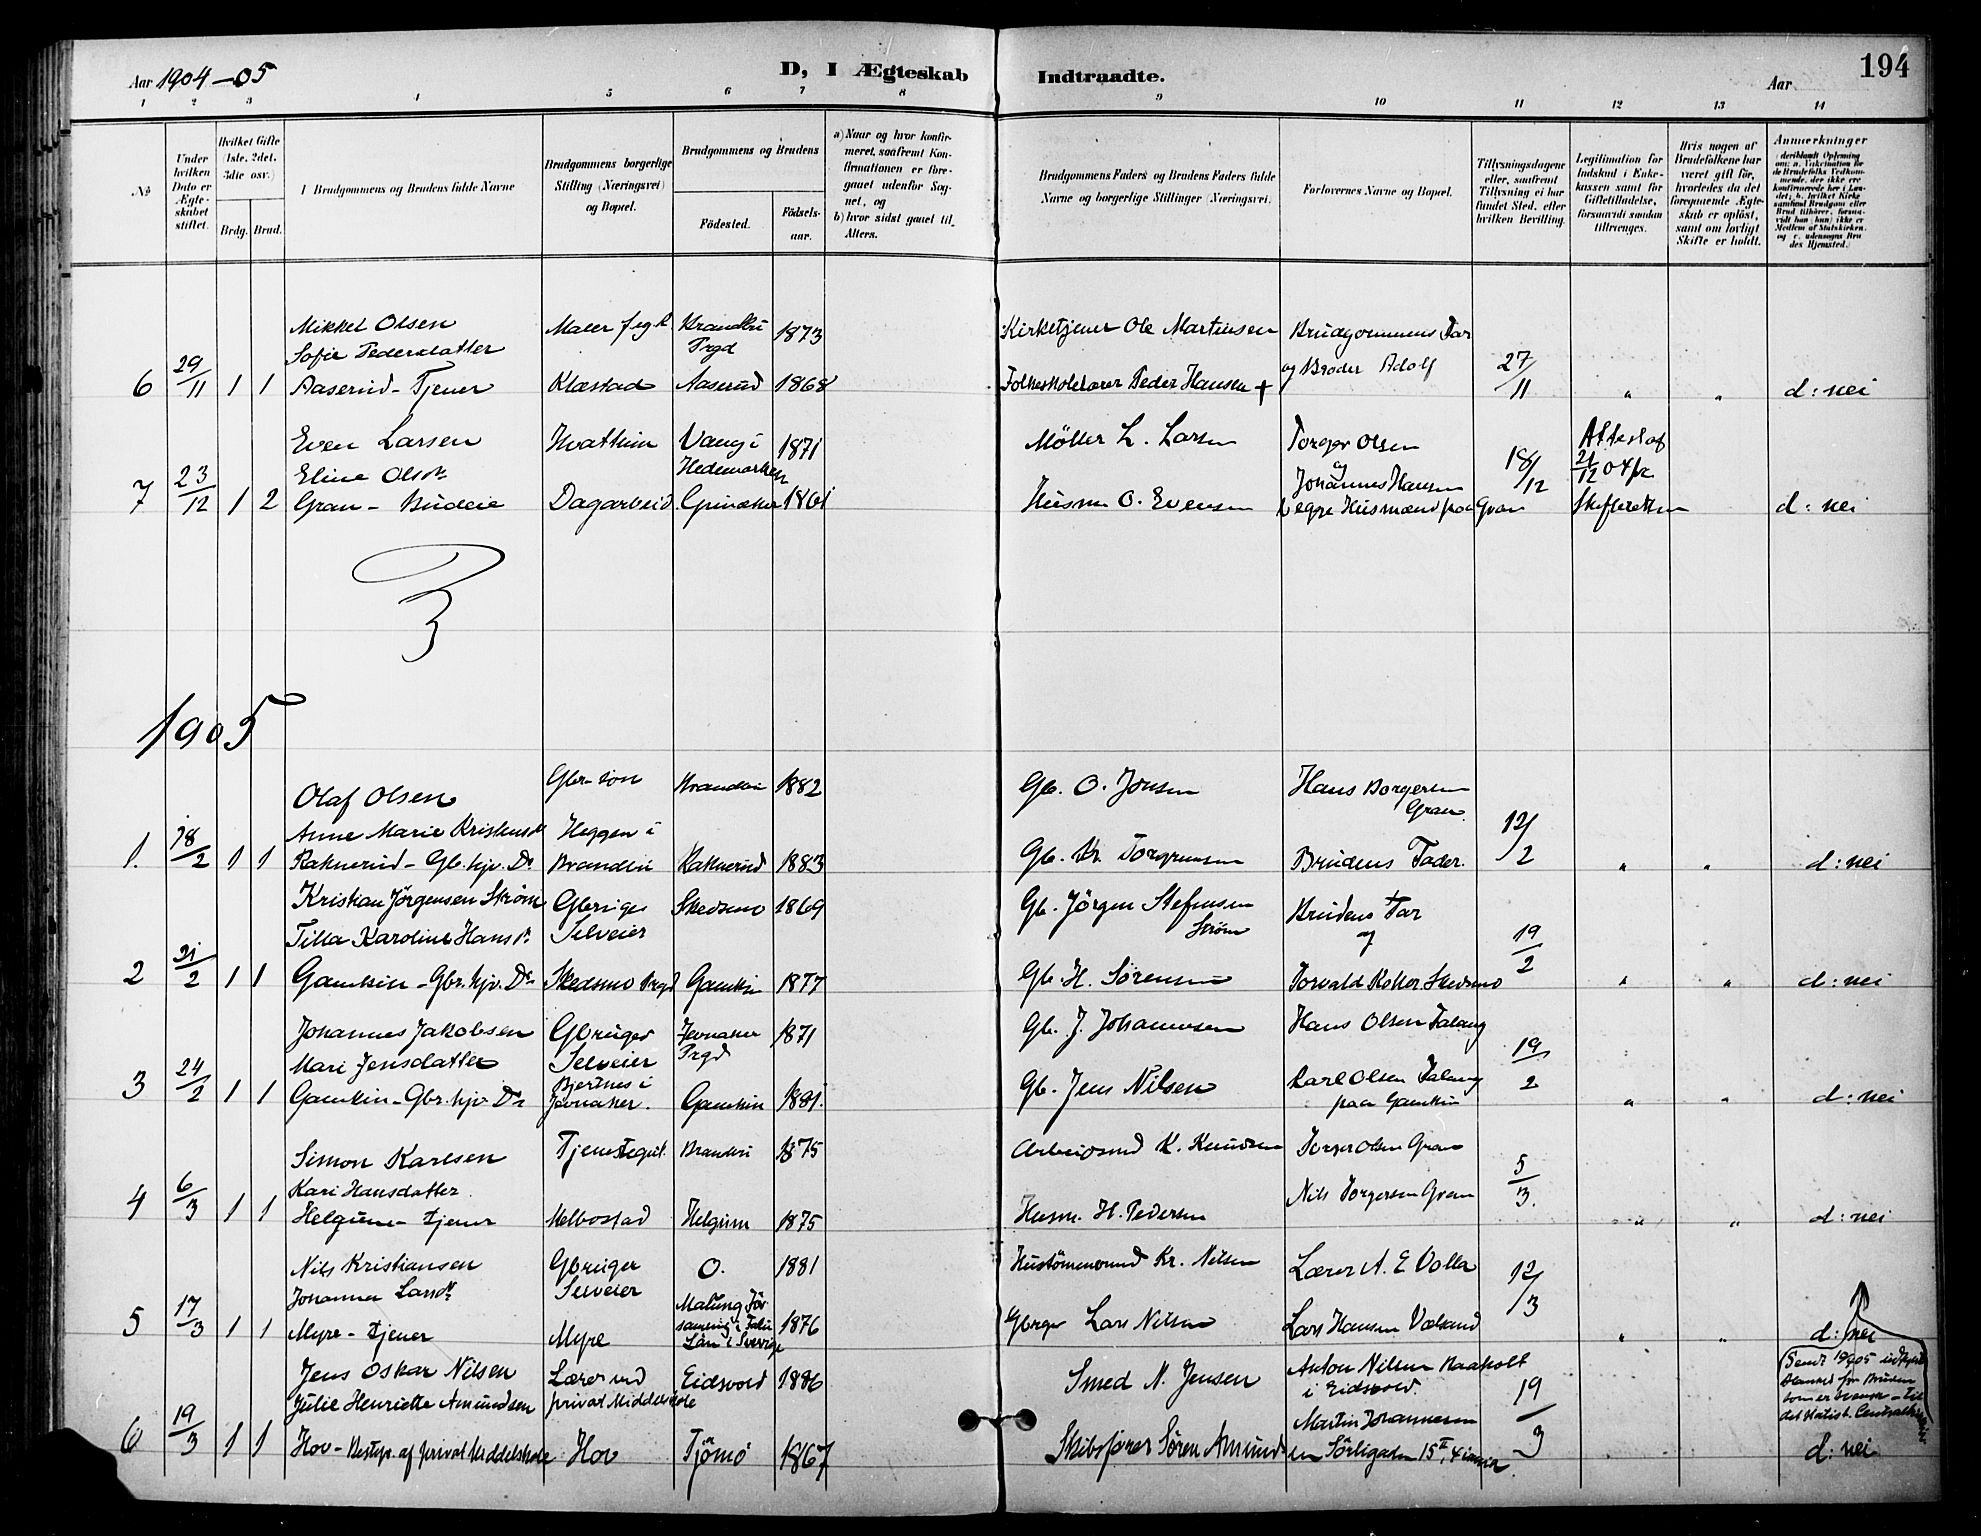 Aar 1904-05
D, I Ægteskab Indtraadte.
Aar
194
1 2 3 4 5 6 7 8 9 10 11 12 13 14
No
Under hvilken Dato er Ægteskabet stiftet.
Hvilket Gifte (1ste, 2det, 3die osv.)
Brdg. Brud.
Brudgommens og Brudens fulde Navne
Brudgommens borgerlige Stilling (Næringsvei) og Bopæl.
Brudgommens og Brudens
Födested.
Födselsaar.
a) Naar og hvor konfirmeret, saafremt Konfirmationen er foregaaet udenfor Sognet, og
b) hvor sidst gaaet til Alters.
Brudgommens Faders og Brudens Faders fulde Navne og borgerlige Stillinger (Næringsvei).
Forlovernes Navne og Bopæl.
Tillysningsdagene eller, saafremt Tillysning ei har fundet Sted, efter hvilken Bevilling.
Legitimation for Indskud i Enkekassen samt for Giftetilladelse, forsaavidt saadan tiltrænges.
Hvis nogen af Brudefolkene har været gift för, hvorledes da det foregaaende Ægteskab er oplöst, samt om lovligt Skifte er holdt.
Anmærkninger
Mikkel Olsen
Brandbu Prgd 1873
Kirketjener Ole Martinsen
Brudgommens Far
Sofie Pedersdatter
og Broder Adolf
6 29/11 1 1 Aaserud - Tjener Klæstad Aaserud 1868 Folkeskolelærer Peder Hansen + 27/11 " " d: nei
Even Larsen
Vang i Hedemarken 1871
Möller L. Larsen
Torger Olsen
og
Attest af
Eline Olsdr.
Johannes Hansen
21/12 04 fr
7 23/12 1 2 Gran - Budeie Dagarbeid. 1861 Husm O. Evensen begge Husmænd paa Gran 18/12 Skifteretten d: nei
1905
Olaf Olsen
Gbr-søn
Brandbu 1882
Gb. O. Jonsen
Hans Borgersen
Gran
Anne Marie Kristensdr
Heggen i
1. 18/2 1 1 Raknerud - Gb. hjv. Dr Brandbu Raknerud 1883 Gb. Kr. Torgersen Brudens Fader. 12/2 " " d: nei
Kristian Jørgensen Strøm
Gbruger
Skedsmo 1869
Gb. Jørgen Stefensen
Strøm
Brudens Far
og
Tilla Karoline Hansdr.
Selveier
2 21/2 1 1 Gamkin - Gbr. hjv. Dr Skedsmo Prgd Gamkin 1877 Gb. H. Sörensen Torvald Skedsmo 19/2 " " d: nei
Johannes Jakobsen
Gbruger
Jevnaker Prgd 1871
Gb. J. Johannesen
Hans Olsen Falang
Mari Jensdatter
Selveier
Bjertnes i
3 24/2 1 1 Gamkin - Gbr. hjv. Dr Jevnaker. Gamkin 1881. Gb. Jens Nilsen Karl Olsen Falang paa Gamkin 19/2 " " d: nei
Simon Karlsen
Tjenestegut.
Brandbu 1875
Arbeidsmd K. Knudsen
Torger Olsen Gran
Kari Hansdatter
Nils Torgersen Gran
4 6/3 1 1 Helgum - tjener Melbostad Helgum 1875 Husm. H. Pedersen 5/3. " " d: nei
Nils Kristiansen
Gbruger
O. 1881
Hustömmermd Kr. Nilsen
Lærer A. E. Volla
Johanna Larsdr
Selveier
Malung
i Sverige
5 17/3 1 1 Myre - tjener Myre 1876 Gbrger Lars Nilsen Lars Hansen Vælsand 12/3 " " d: nei
Jens Oskar Nilsen
Lærer ved
Eidsvold 1886
Smed N. Jensen
Anton Nilsen Raaholt
i Eidsvold.
Julie Henriette Amundsen
privat Middelskole
Martin Johannesen
6 19/3 1 1 Hov - Bestyr. af privat Middelskole Hov Tjömö 1867 Skibsfører Sören Amundsen Sörligaden 15 II, Kiania 19/3 d: nei
Sendt 1905
Blanket for Bruden
som er svensk - til
det statist. Centralbureau